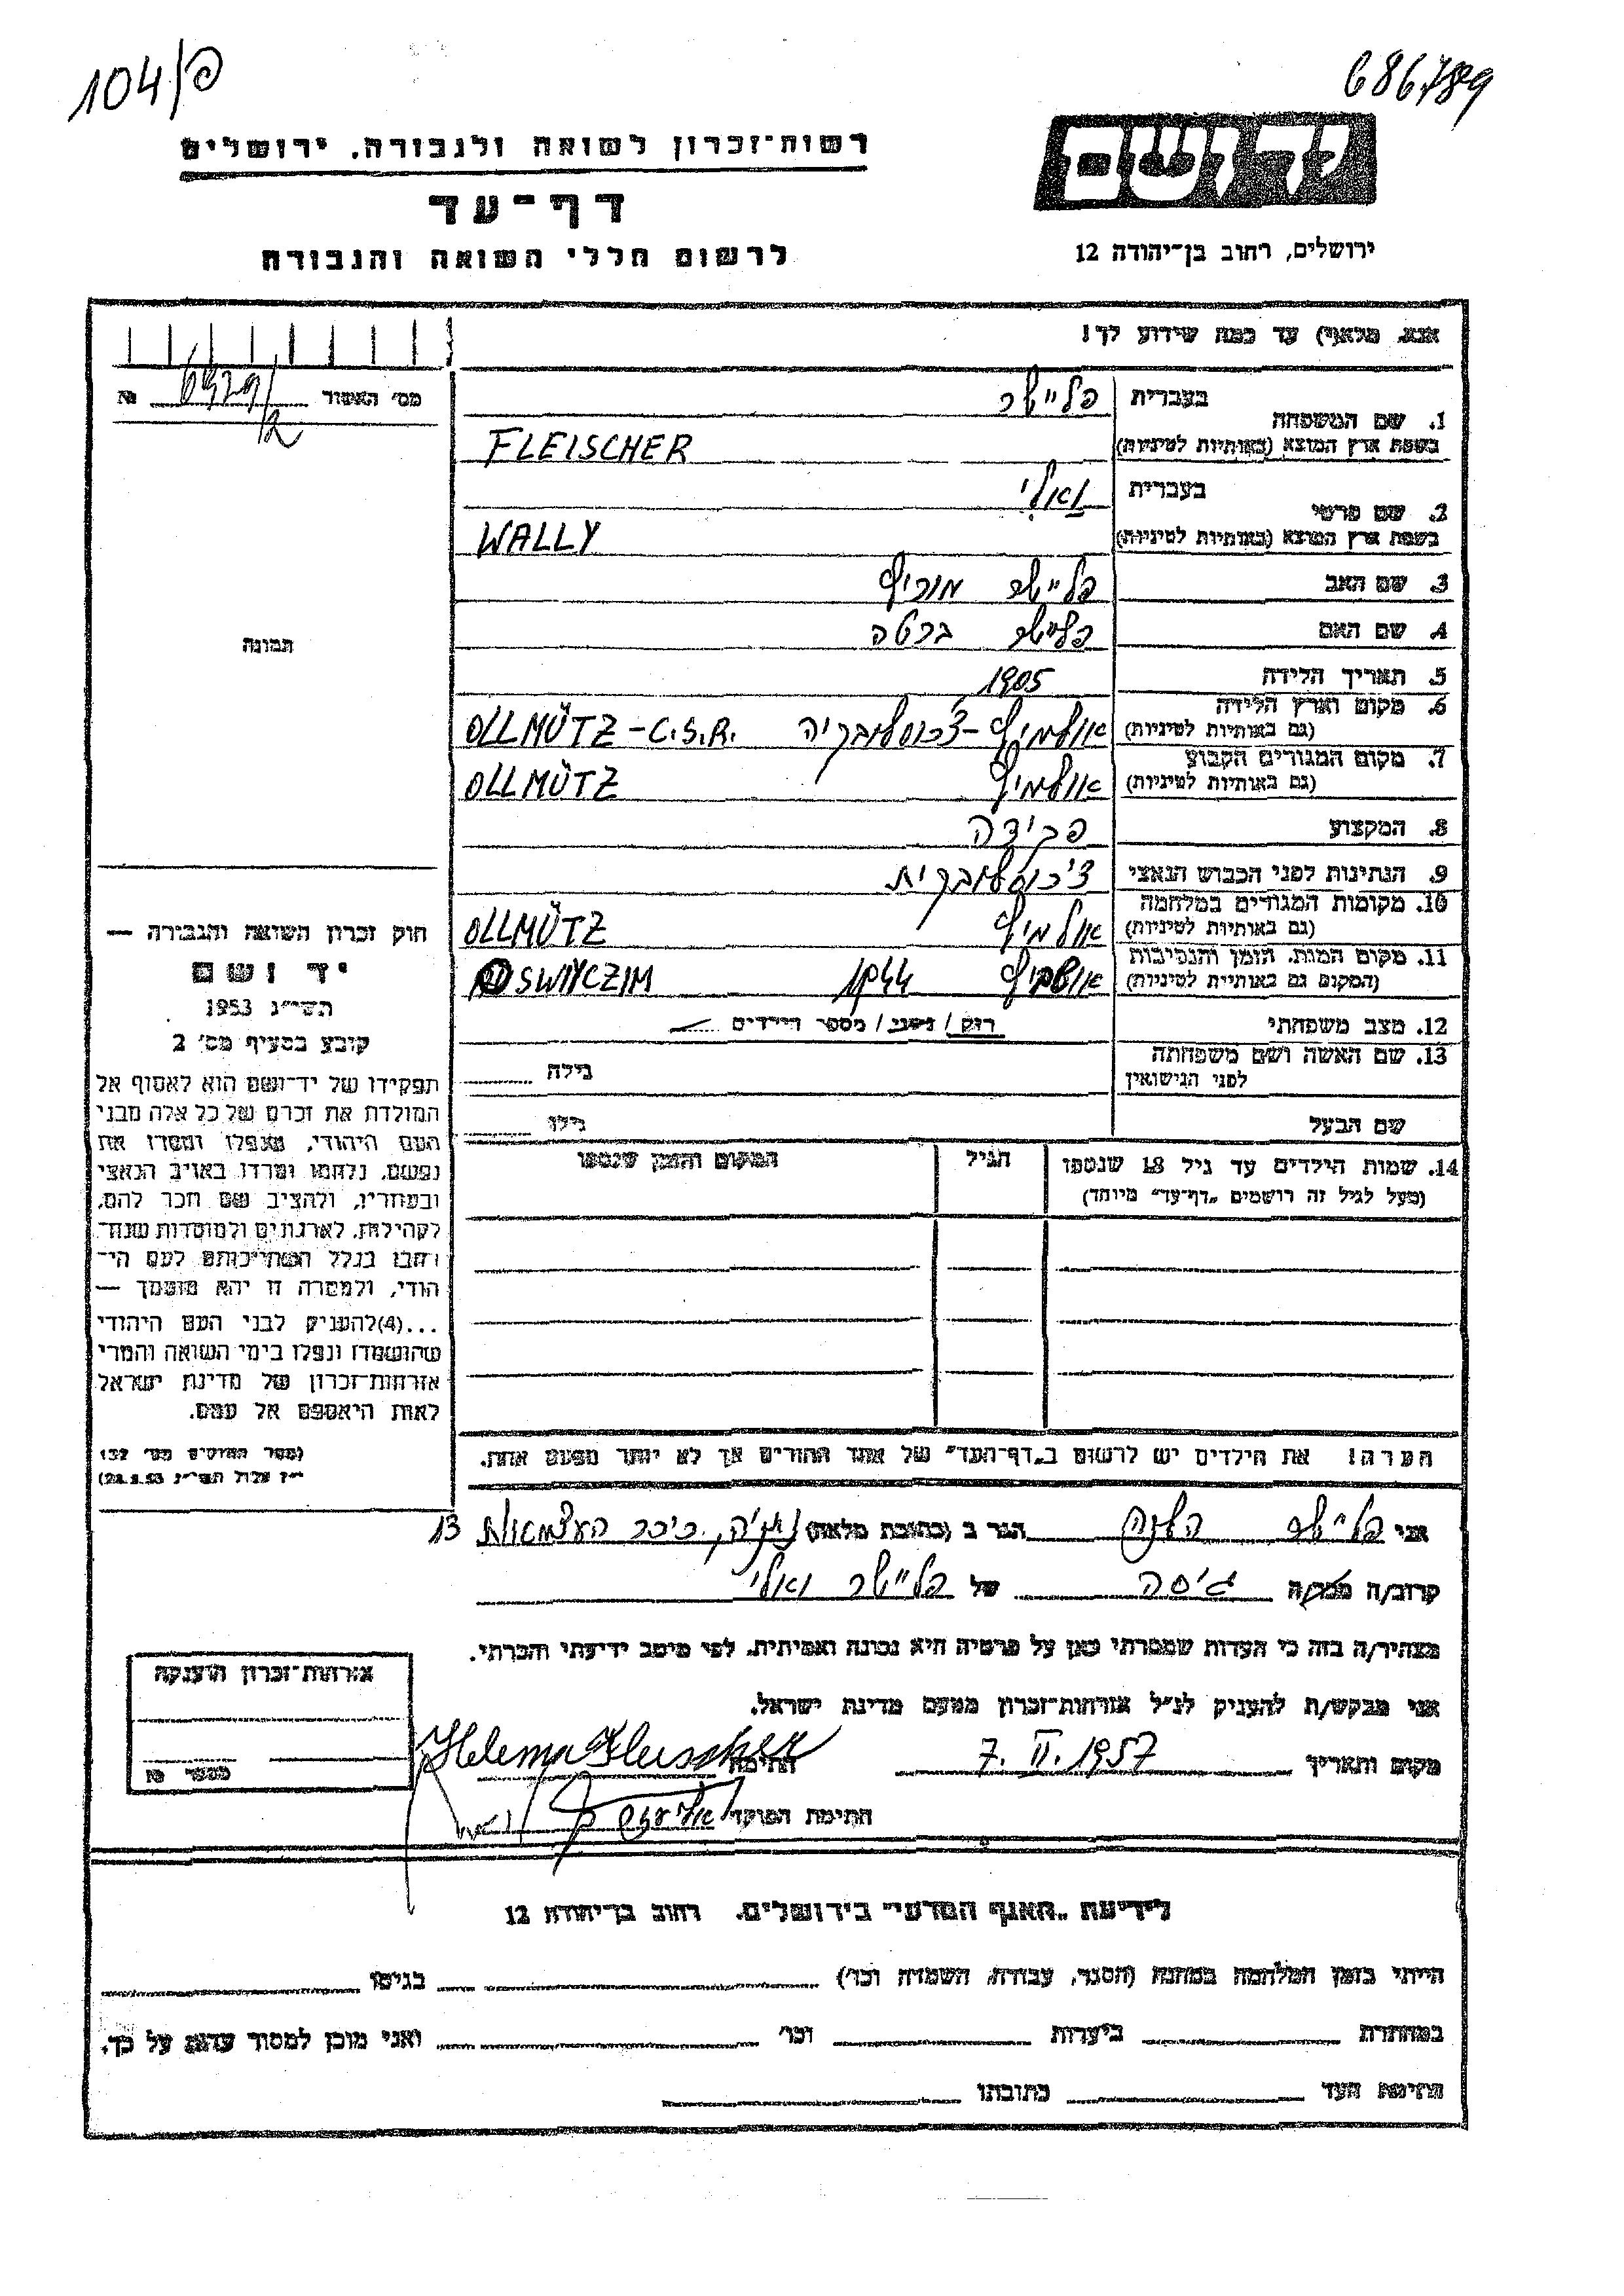 104/פ
686789
רשות־זכרון לשואה ולגבורה, ירושלים
דף־עד
לרשום חללי השואה והגבורה
יד ושם
ירושלים, רחוב בן־יהודה 12
אנא, מלא(י) עד כמה שידוע לך!
מס' האשור №
1. שם המשפחה
בעברית פליישר
בשפת ארץ המוצא (באותיות לטיניות) FLEISCHER
2. שם פרטי
בעברית ואלי
בשפת ארץ המוצא (באותיות לטיניות) WALLY
3. שם האב פליישר מוריץ
4. שם האם פליישר ברטה
5. תאריך הלידה 1905
6. מקום וארץ הלידה
(גם באותיות לטיניות) אולמיץ - צ'כוסלובקיה OLLMÜTZ - C.S.R.
7. מקום המגורים הקבוע
(גם באותיות לטיניות) אולמיץ OLLMÜTZ
8. המקצוע פקידה
9. הנתינות לפני הכבוש הנאצי צ'כוסלובקית
10. מקומות המגורים במלחמה
(גם באותיות לטיניות) אולמיץ OLLMÜTZ
11. מקום המות, הזמן והנסיבות
(המקום גם באותיות לטיניות) אושביץ 1944 OSWIYCZIM
12. מצב משפחתי רוק / נשוי / מספר הילדים
13. שם האשה ושם משפחתה
לפני הנישואין גילה
שם הבעל גילו
14. שמות הילדים עד גיל 18 שנספו
(מעל לגיל זה רושמים „דף־עד" מיוחד)
הגיל
המקום והזמן שנספו
הערה! את הילדים יש לרשום ב„דף־העד" של אחד ההורים אך לא יותר מפעם אחת.
תמונה
חוק זכרון השואה והגבורה —
יד ושם
תשי"ג 1953
קובע בסעיף מס' 2
תפקידו של יד־ושם הוא לאסוף אל
המולדת את זכרם של כל אלה מבני
העם היהודי, שנפלו ומסרו את
נפשם, נלחמו ומרדו באויב הנאצי
ובעוזריו, ולהציב שם וזכר להם,
לקהילות, לארגונים ולמוסדות שנח־
רבו בגלל השתייכותם לעם הי־
הודי, ולמטרה זו יהא מוסמך —
...(4)להעניק לבני העם היהודי
שהושמדו ונפלו בימי השואה והמרי
אזרחות־זכרון של מדינת ישראל
לאות היאספם אל עמם.
(ספר החוקים מס' 132
י"ז אלול תשי"ג 28.8.53)
אני פליישר הלנה הגר ב (כתובת מלאה) נתניה, כיכר העצמאות 13
קרוב/ה גיסה של פליישר ואלי
מצהיר/ה בזה כי העדות שמסרתי כאן על פרטיה היא נכונה ואמיתית, לפי מיטב ידיעתי והכרתי.
אני מבקש/ת להעניק לנ"ל אזרחות־זכרון מטעם מדינת ישראל.
מקום ותאריך 7. II. 1957 חתימה Helena Fleischer
חתימת הפוקד
אזרחות־זכרון הוענקה
מספר №
לידיעת „האגף המדעי" בירושלים, רחוב בן־יהודה 12
הייתי בזמן המלחמה במחנה (הסגר, עבודה, השמדה וכו') בגיטו
במחתרת ביערות וכו' ואני מוכן למסור עדות על כך.
חתימת העד כתובתו